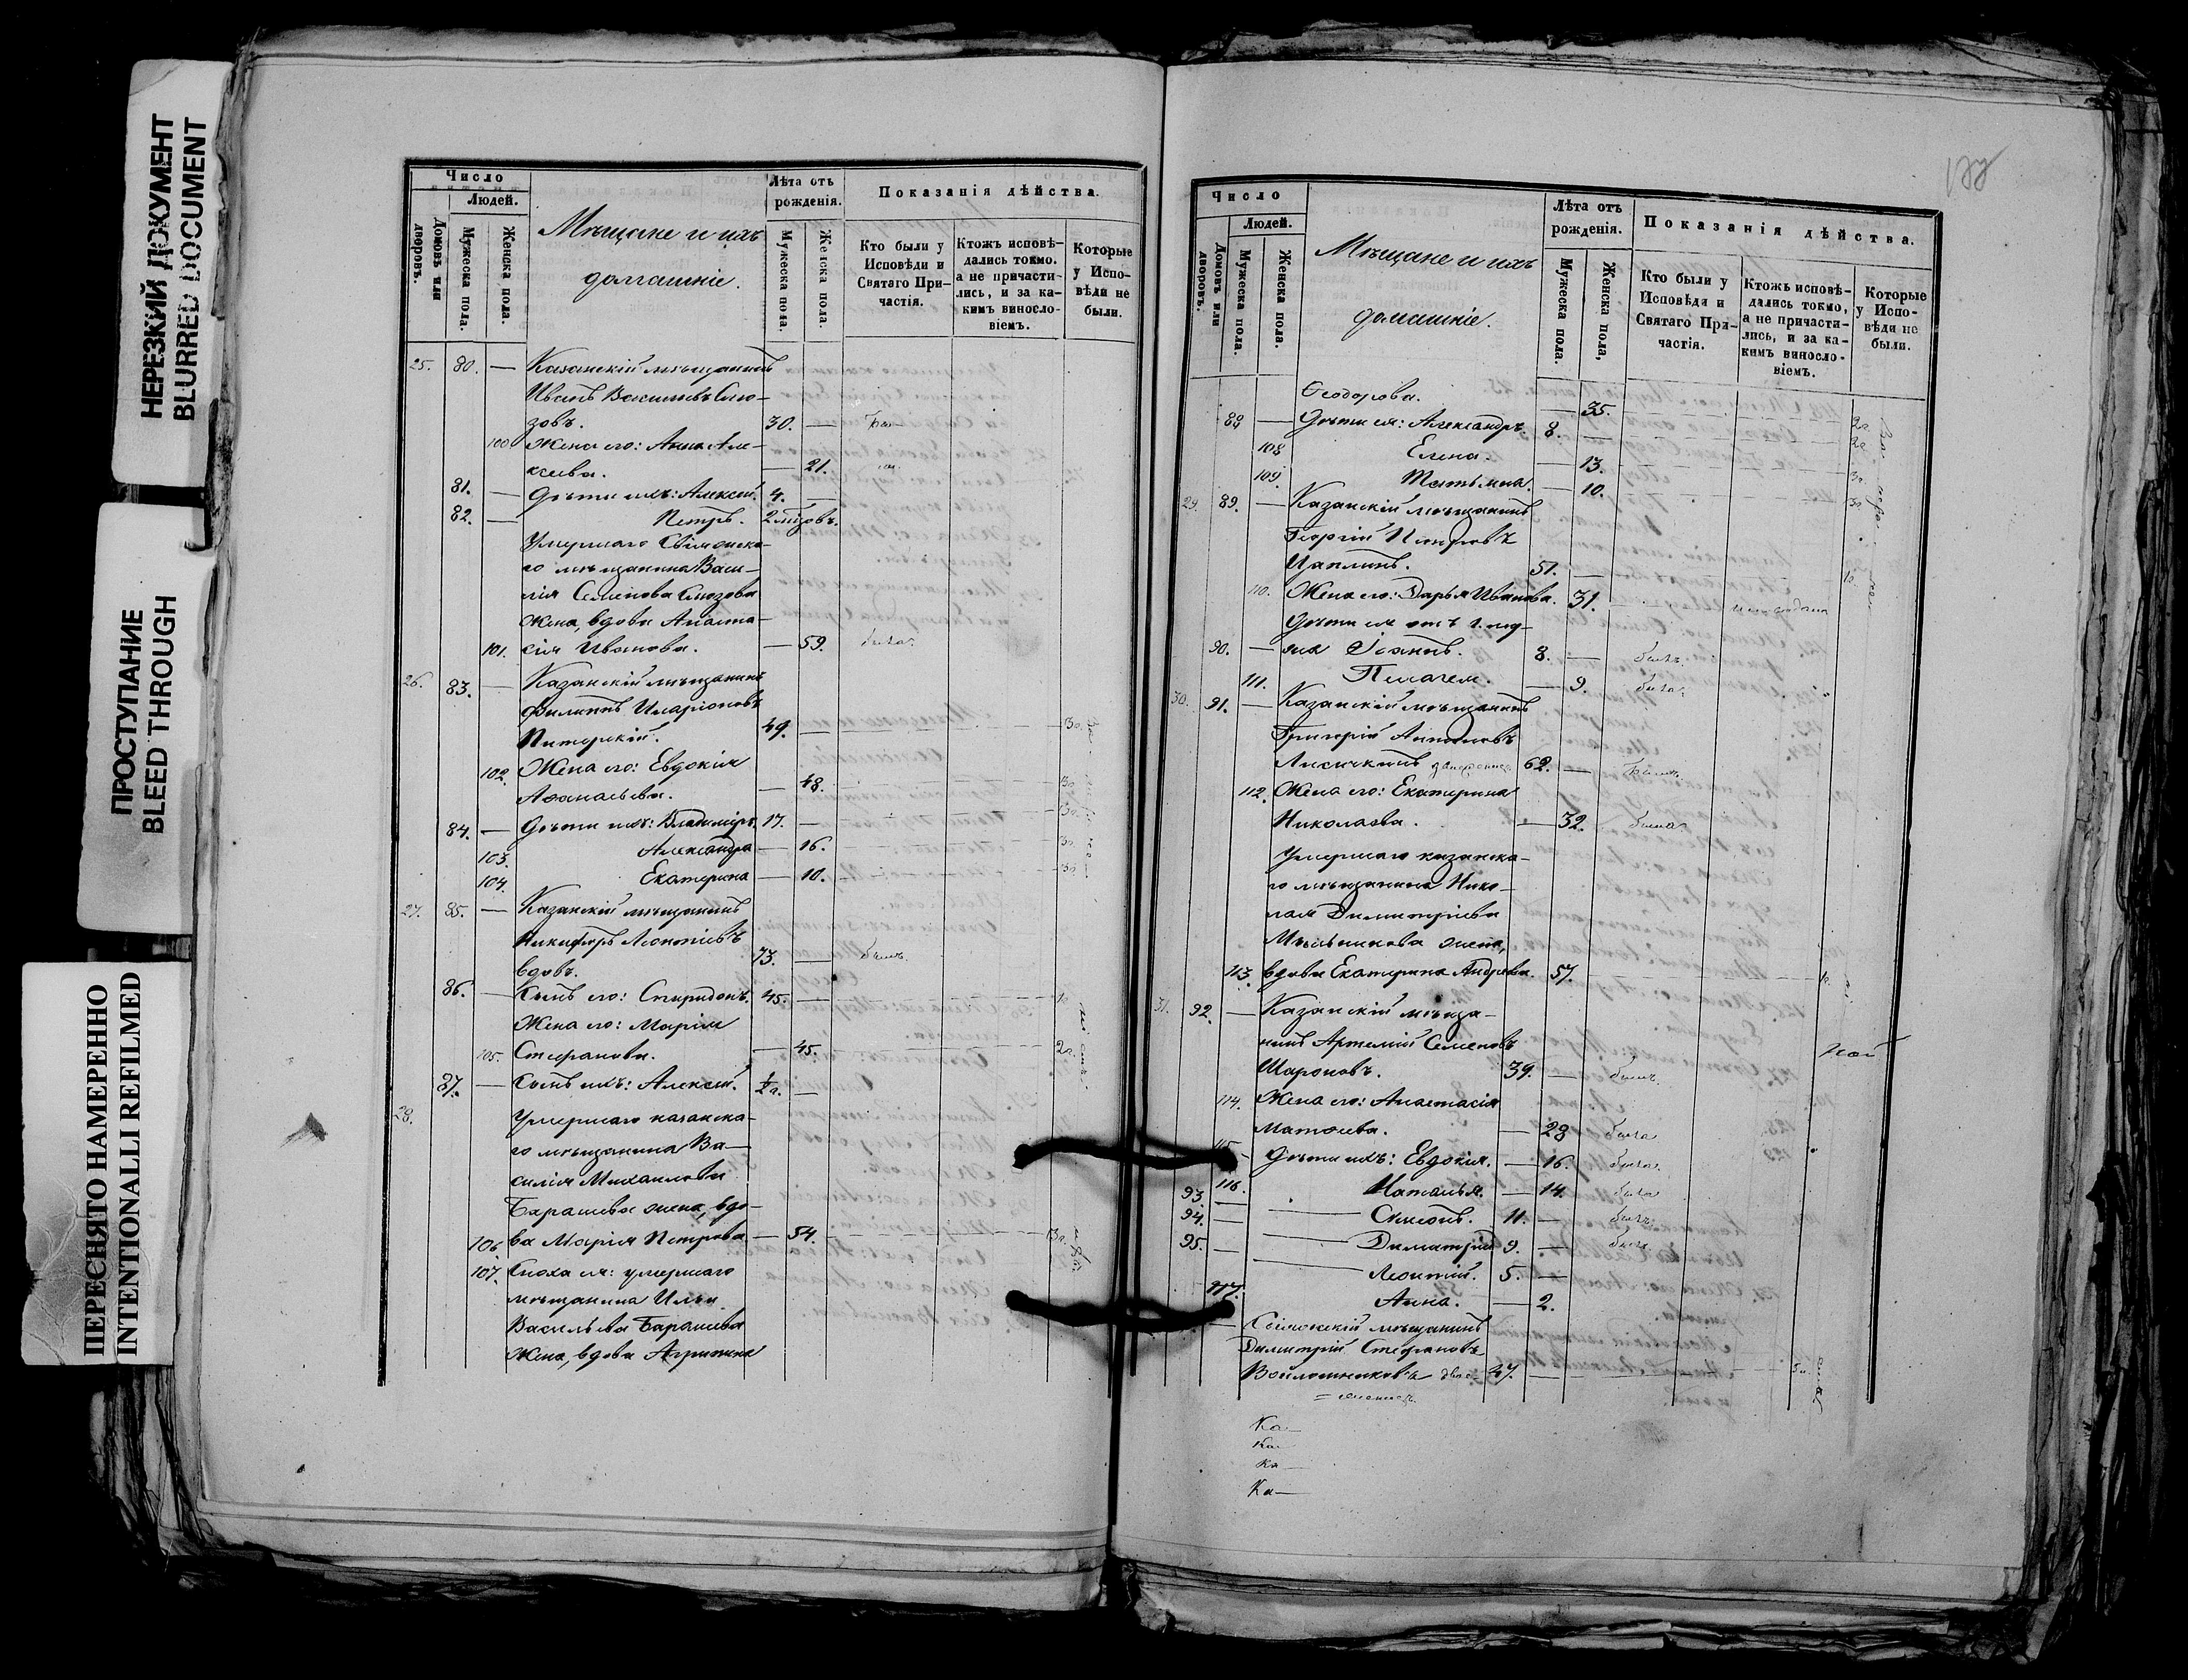 НЕРЕЗКИЙ ДОКУМЕНТ
BLURRED DOCUMENT
ПРОСТУПАНИЕ
BLEED THROUGH
ПЕРЕСНЯТО НАМЕРЕННО
INTENTIONALLI REFILMED
Число
Людей.
Домовъ или дворовъ.
Мужеска пола.
Женска пола.
Мѣщане и ихъ
домашніе.
Лѣта отъ рожденія.
Мужеска пола.
Женска пола.
Показанія дѣйства.
Кто были у Исповѣди и Святаго Причастія.
Ктожъ исповѣдались токмо, а не причастились, и за какимъ винословіемъ.
Которые у Исповѣди не были.
25. 80. — Казанскій мѣщанинъ
Иванъ Васильевъ Слю-
зовъ. 30. —
100 Жена его: Анна Але-
ксеева. — 21.
81. — Дѣти ихъ: Алексѣй. 4. —
82. — Петръ. 2
Умершаго Свіяжска-
го мѣщанина Васи-
лія Семенова Слюзова
жена, вдова Анаста-
101. сія Иванова. — 59. была.
26. 83. — Казанскій мѣщанинъ
Филиппъ Иларіоновъ
Питерскій. 49. —
102. Жена его: Евдокія
Аѳанасьева. — 48.
84. — Дѣти ихъ: Владиміръ. 17. —
103. Александра — 16.
104. Екатерина — 10.
27. 85. — Казанскій мѣщанинъ
Никифоръ Леонтіевъ
вдовъ. 73. — былъ.
86. — Сынъ его: Спиридонъ. 45. —
Жена его: Марія
105. Стефанова. — 45. 2г.
87. — Сынъ ихъ: Алексѣй. ½г. —
28. Умершаго казанска-
го мѣщанина Ва-
силія Михаилова
Барашева жена, вдо-
106. ва Марія Петрова — 54.
107. Сноха ея: умершаго
мѣщанина Ильи
Васильева Барашева
жена, вдова Агрипина
188
Число
Людей.
Домовъ или дворовъ.
Мужеска пола.
Женска пола.
Мѣщане и ихъ
домашніе.
Лѣта отъ рожденія.
Мужеска пола.
Женска пола,
Показанія дѣйства.
Кто были у Исповѣди и Святаго Причастія.
Ктожъ исповѣдались токмо, а не причастились, и за какимъ винословіемъ.
Которые у Исповѣди не были.
Ѳеодорова. — 35. 2г.
88 — Дѣти ея: Александръ. 8. — 2г.
108 Елена. — 13.
109. Татьяна. — 10.
29. 89. — Казанскій мѣщанинъ
Георгій Петровъ
Цаплинъ. 51. —
110. Жена его: Дарья Иванова. — 31.
Дѣти ея отъ 1. му-
90. — жа Іоаннъ. 8. — былъ.
111. Пелагея. — 9. была.
30. 91. — Казанскій мѣщанинъ
Григорій Антоновъ
Лисичкинъ 62. —
112. Жена его: Екатерина
Николаева. — 32. была.
Умершаго казанска-
го мѣщанина Нико-
лая Димитріева
Мѣльникова жена,
113. вдова Екатерина Андреева. 57.
31. 92. — Казанскій мѣща-
нинъ Артемій Семеновъ
Шароновъ. 39. — былъ.
114. Жена его: Анастасія
Матѳеева. — 28 была
115. Дѣти ихъ: Евдокія. — 16. была.
116. Наталья. — 14. была
93 — Симеонъ. 11. — былъ.
94. — Димитрій 9. — былъ.
95. — Леонтій. 5. —
117. Анна. — 2.
— Свіяжскій мѣщанинъ
Димитрій Стефановъ
Войлошниковъ 47. —
Ка—
Ка—
Ка—
Ка—